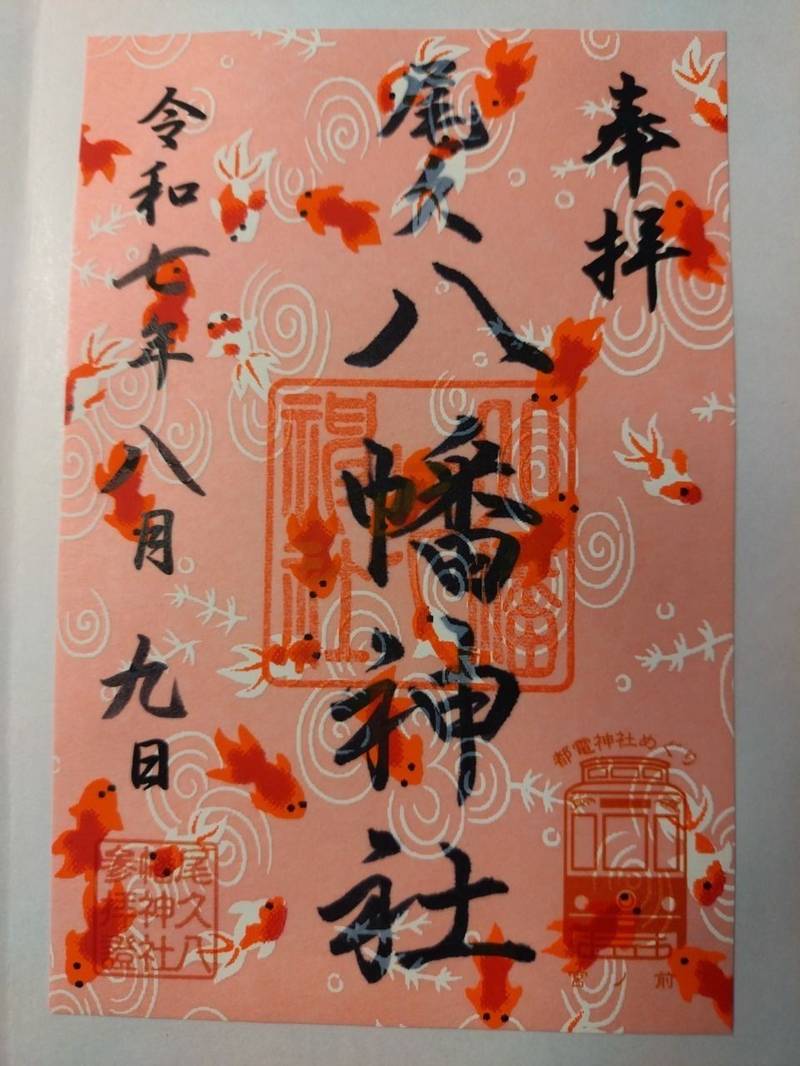 奉拝
尾久八幡神社
令和七年八月九日
八幡
神社
都電神社めぐり
宮ノ前
尾久八
幡神社
参拝證